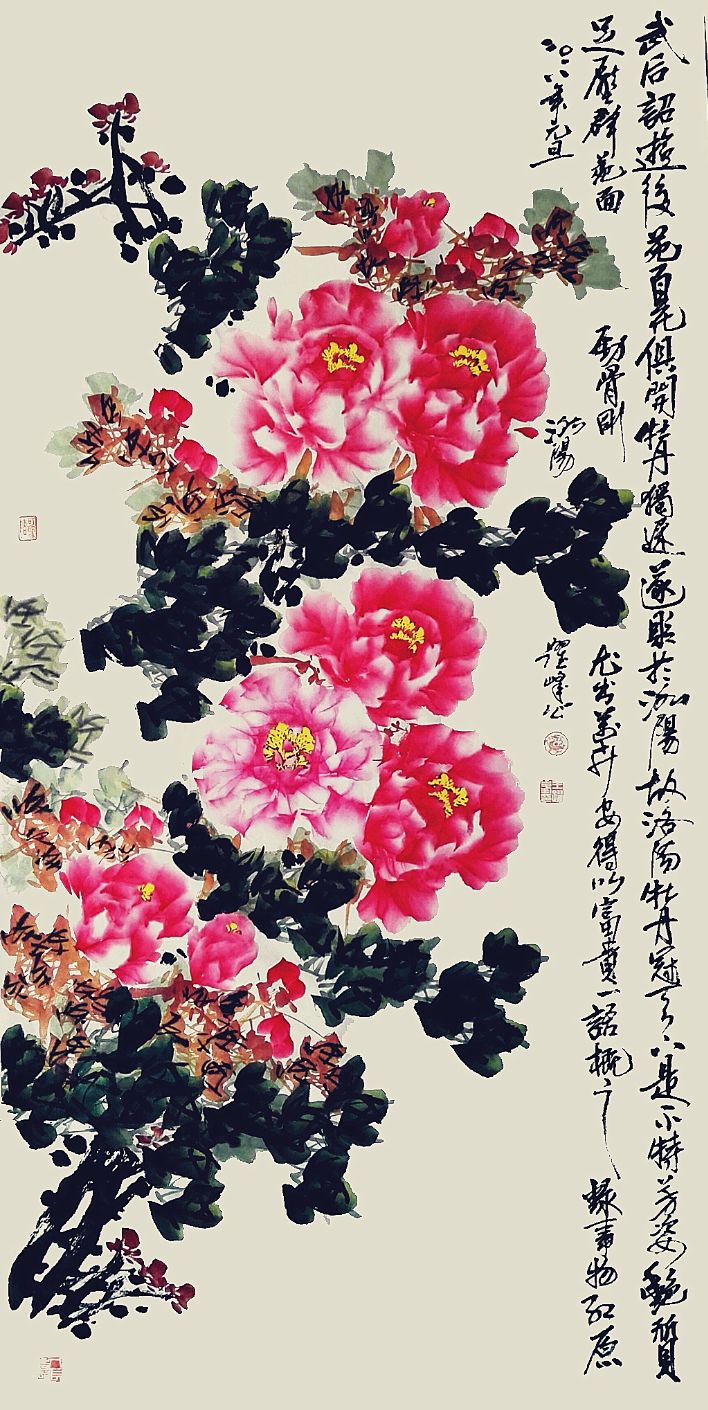 武后詔遊後苑百花俱開牡丹獨遲遂貶於洛陽故洛陽牡丹冠天下是不特芳姿艷質
足壓群葩而勁骨剛尤出萬卉安得以富貴一語概之錄事物紀原
二〇一八年元旦洛陽耀峰